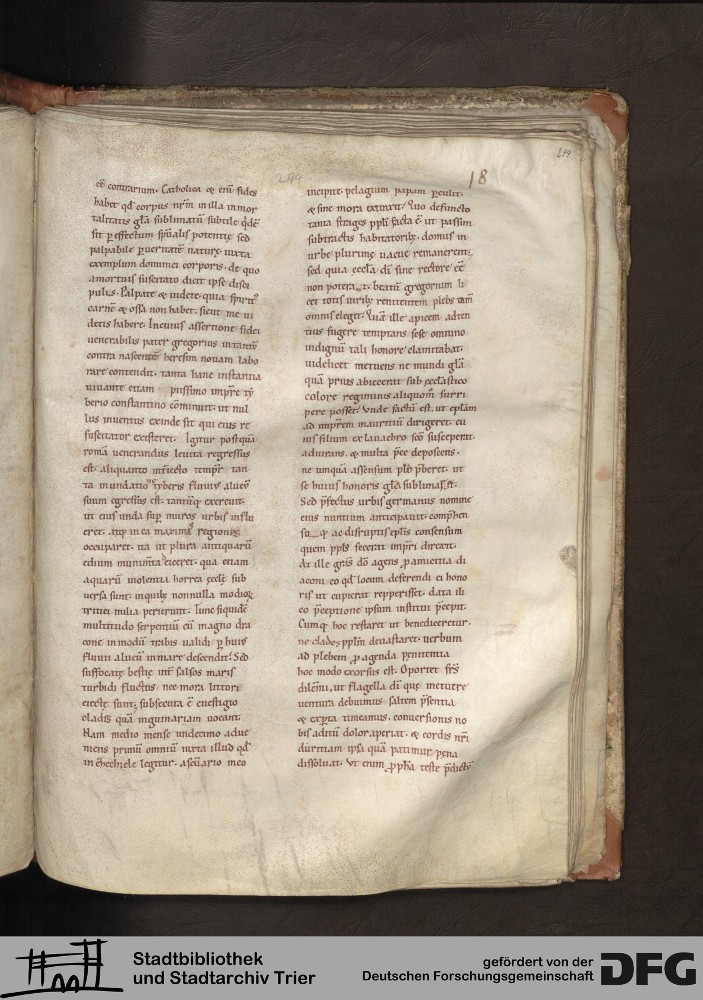 249
18
249
eē contrarium. Catholica & enī fides
habet qđ corpus nr̄m in illa inmor
talitatis gła sublimatū subtile q̄dē
sit ꝑ effectum spūalis potentie sed
palpabile ꝑ ueritatē nature iuxta
exemplum dominici corporis. de quo
amortuis suscitato dicit ipse disci
pulis. Palpate & uidete quia spirit᷒
carnē & ossa non habet. sicut me ui
detis habere. Incuius assertione fidei
uenerabilis pater gregorius intantū
contra nascentē heresim nouam labo
rare contendit. tanta hanc instantia
iuuante etiam piissimo impre ty
berio constantino cōminuit. ut nul
lus inuentus exinde sit qui eius re
suscitator existeret. Igitur postquā
romā uenerandus leuita regressus
est. aliquanto int̄iecto tempr̄ tan
ta inundatione tyberis fluuius alueū
suum egressus est. tantūq; excreuit.
ut eius unda sup̄ muros urbis influ
eret. atq; in ea maxima regiones
occuparet. ita ut plura antiquarū
edium munim̄ta deiceret. qua etiam
aquarū uiolentia horrea eccłe sub
uersa sunt. inquib; nonnulla modioꝝ
tritici milia perierunt. Tunc siquidē
multitudo serpentiū cū magno dra
cone inmodū trabis ualidi ꝑ huius
fluuii alueū inmare descendit. Sed
suffocate bestie int̄ salsos maris
turbidi fluctus. nec mora littori
eiecte sunt. subsecuta ē euestigio
cladis quā inguinariam uocant.
Nam medio mense undecimo adue
niens primū omniū iuxta illud qđ
in ezechiele legitur. a sc̄uario meo
incipite. pelagium papam ꝑculit.
& sine mora extinxit. Quo defuncto
tanta strages ppłi facta ē ut passim
subtractis habitatorib; domus in
urbe plurime uacue remanerent.
sed quia ecclā dī sine rectore eē
non poterat. beatū gregorium li
cet totis uirib; renitentem plebs tam̄
omnis elegit. Quā ille apicem adten
tius fugere temptans sese omnino
indignū tali honore clamitabat.
uidelicet metuens ne mundi glā
quā prius abiecerat sub eccłastico
colore regiminis aliquom̄ surri
pere posset. Unde factū est. ut epłam
ad imp̄rem mauritiū dirigeret. cu
ius filium ex lauachro sc̄o susceperat.
adiurans. & multa p̄ce deposcens.
ne umquā assensum plb p̄beret. ut
se huius honoris glā sublimasset.
Sed p̄fectus urbis germanus nomine
eius nuntium anticipauit. comp̄hen
so q; ac disruptis epłis consensum
quem ppłs fecerat imp̄ri direxit.
At ille gr̄as dō agens ꝓ amicitia di
aconi eo qđ locum deferendi ei hono
ris ut cupierat repperisset. data ili
co p̄ceptione ipsum institui p̄cepit.
Cumq; hoc restaret ut benediceretur.
ne clades pplm̄ deuastaret. uerbum
ad plebem ꝓ agenda penitentia
hoc modo exorsus est. Oportet frs̄
dilēmi. ut flagella dī que metuere
uentura debuimus saltem p̄sentia
& exp̄ta timeamus. conuersionis no
bis aditū dolor aperiat. & cordis nr̄i
duritiam ipsa quā patimur pena
dissoluat. Ut enim ꝓph̄a teste p̄dictū
Stadtbibliothek
und Stadtarchiv Trier
gefördert von der
Deutschen Forschungsgemeinschaft
DFG